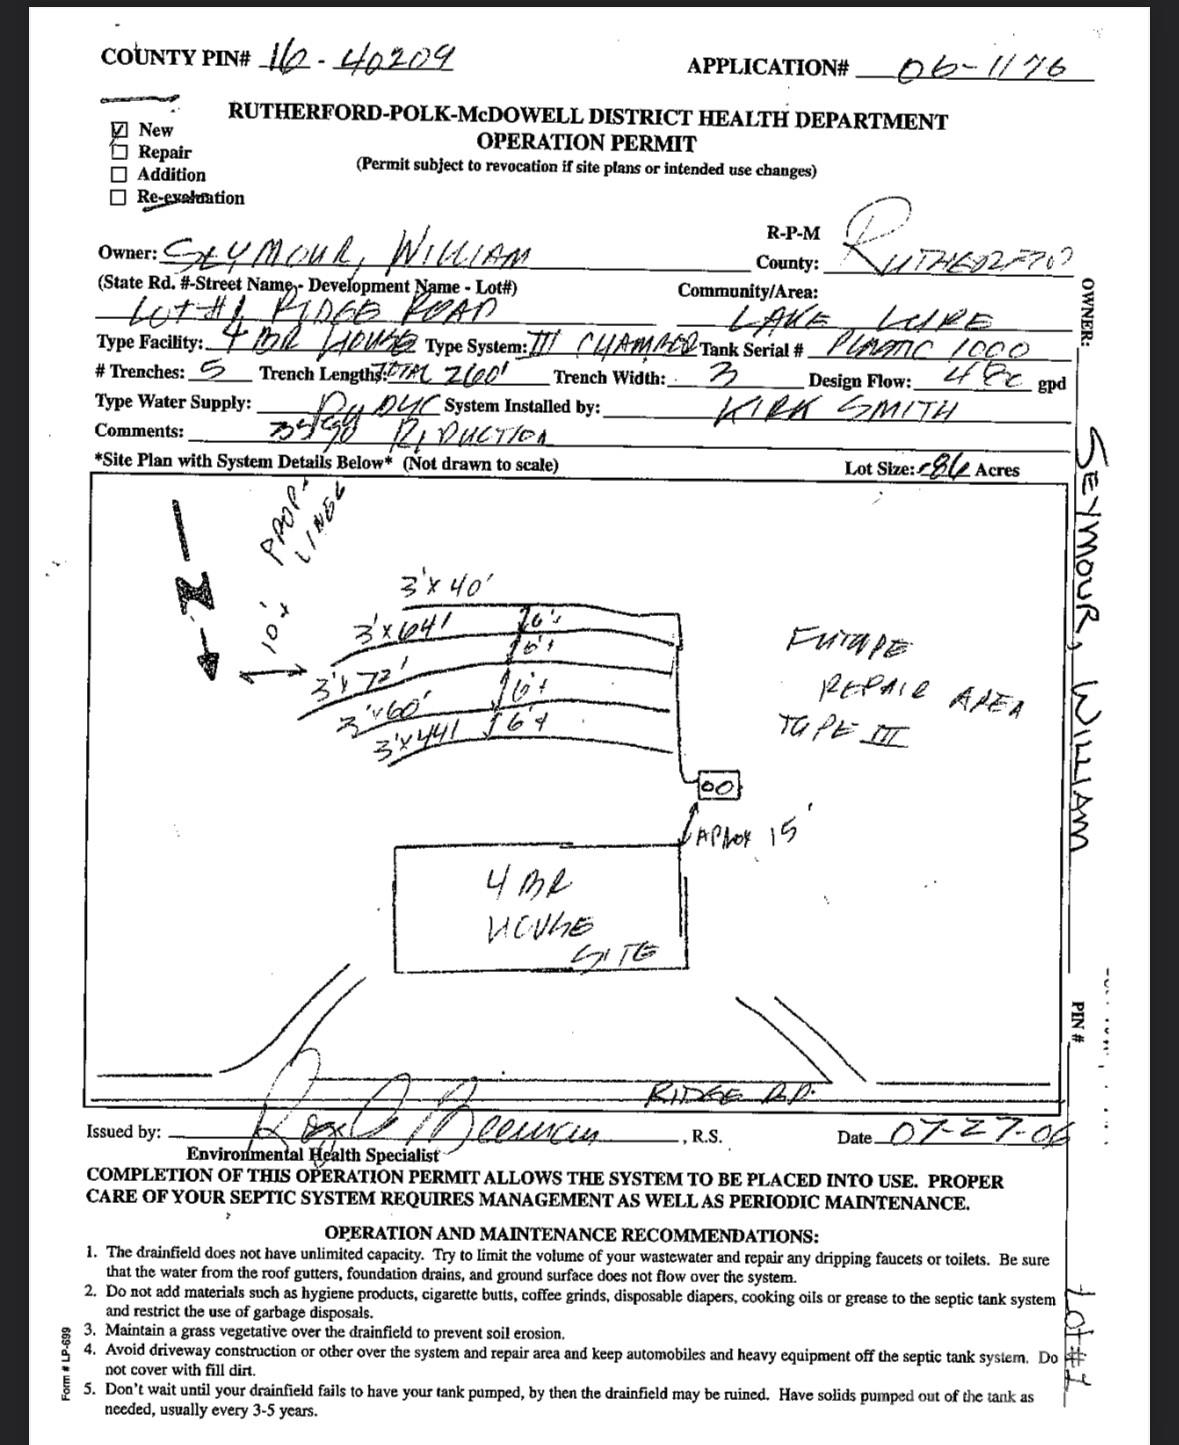 COUNTY PIN# 16-40209
APPLICATION# 06-1176
RUTHERFORD-POLK-McDOWELL DISTRICT HEALTH DEPARTMENT
OPERATION PERMIT
(Permit subject to revocation if site plans or intended use changes)
☑ New
☐ Repair
☐ Addition
☐ Re-evaluation
R-P-M
Owner: SEYMOUR, WILLIAM County: RUTHERFORD
(State Rd. #-Street Name- Development Name - Lot#) Community/Area:
LOT #1 RIDGE ROAD LAKE LURE
Type Facility: 4 BR HOUSE Type System: III CHAMBER Tank Serial # PLASTIC 1000
# Trenches: 5 Trench Length: TOTAL 260' Trench Width: 3 Design Flow: 480 gpd
Type Water Supply: System Installed by: KIRK SMITH
Comments: REDUCTION
*Site Plan with System Details Below* (Not drawn to scale) Lot Size: .86 Acres
PROP. LINE
N
10'±
3'x40'
3'x64'
3'x72'
3'x60'
3'x44'
6'±
6'±
6'±
6'±
FUTURE
REPAIR AREA
TYPE III
APROX 15'
4 BR
HOUSE
SITE
RIDGE RD.
Issued by: , R.S. Date 07-27-06
Environmental Health Specialist
COMPLETION OF THIS OPERATION PERMIT ALLOWS THE SYSTEM TO BE PLACED INTO USE. PROPER
CARE OF YOUR SEPTIC SYSTEM REQUIRES MANAGEMENT AS WELL AS PERIODIC MAINTENANCE.
OPERATION AND MAINTENANCE RECOMMENDATIONS:
1. The drainfield does not have unlimited capacity. Try to limit the volume of your wastewater and repair any dripping faucets or toilets. Be sure
that the water from the roof gutters, foundation drains, and ground surface does not flow over the system.
2. Do not add materials such as hygiene products, cigarette butts, coffee grinds, disposable diapers, cooking oils or grease to the septic tank system
and restrict the use of garbage disposals.
3. Maintain a grass vegetative over the drainfield to prevent soil erosion.
4. Avoid driveway construction or other over the system and repair area and keep automobiles and heavy equipment off the septic tank system. Do
not cover with fill dirt.
5. Don't wait until your drainfield fails to have your tank pumped, by then the drainfield may be ruined. Have solids pumped out of the tank as
needed, usually every 3-5 years.
Form # LP-699
OWNER: SEYMOUR, WILLIAM
PIN # Lot #1